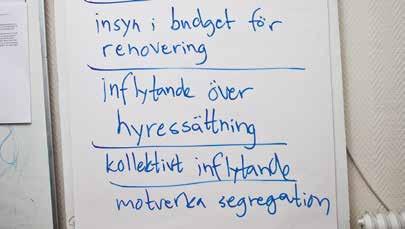 insyn i budget för
renovering
inflytande över
hyressättning
kollektivt inflytande
motverka segregation